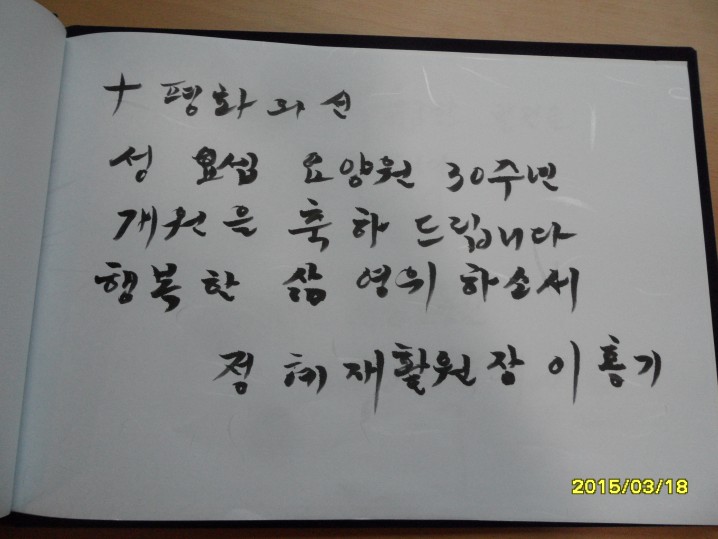 十 평화와 선
성 요셉 요양원 30주년
개원을 축하 드립니다
행복한 삶 영위 하소서
정혜재활원장 이홍기
2015/03/18